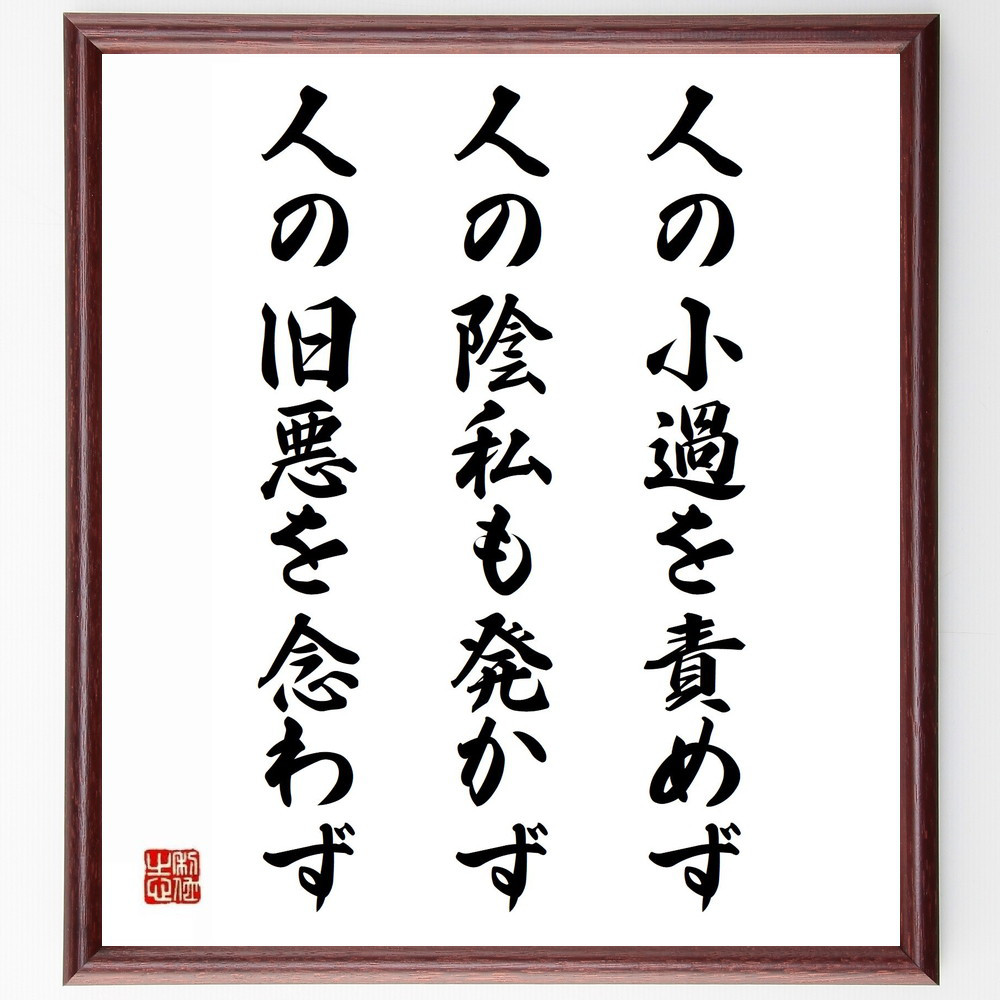 人の小過を責めず
人の陰私も発かず
人の旧悪を念わず